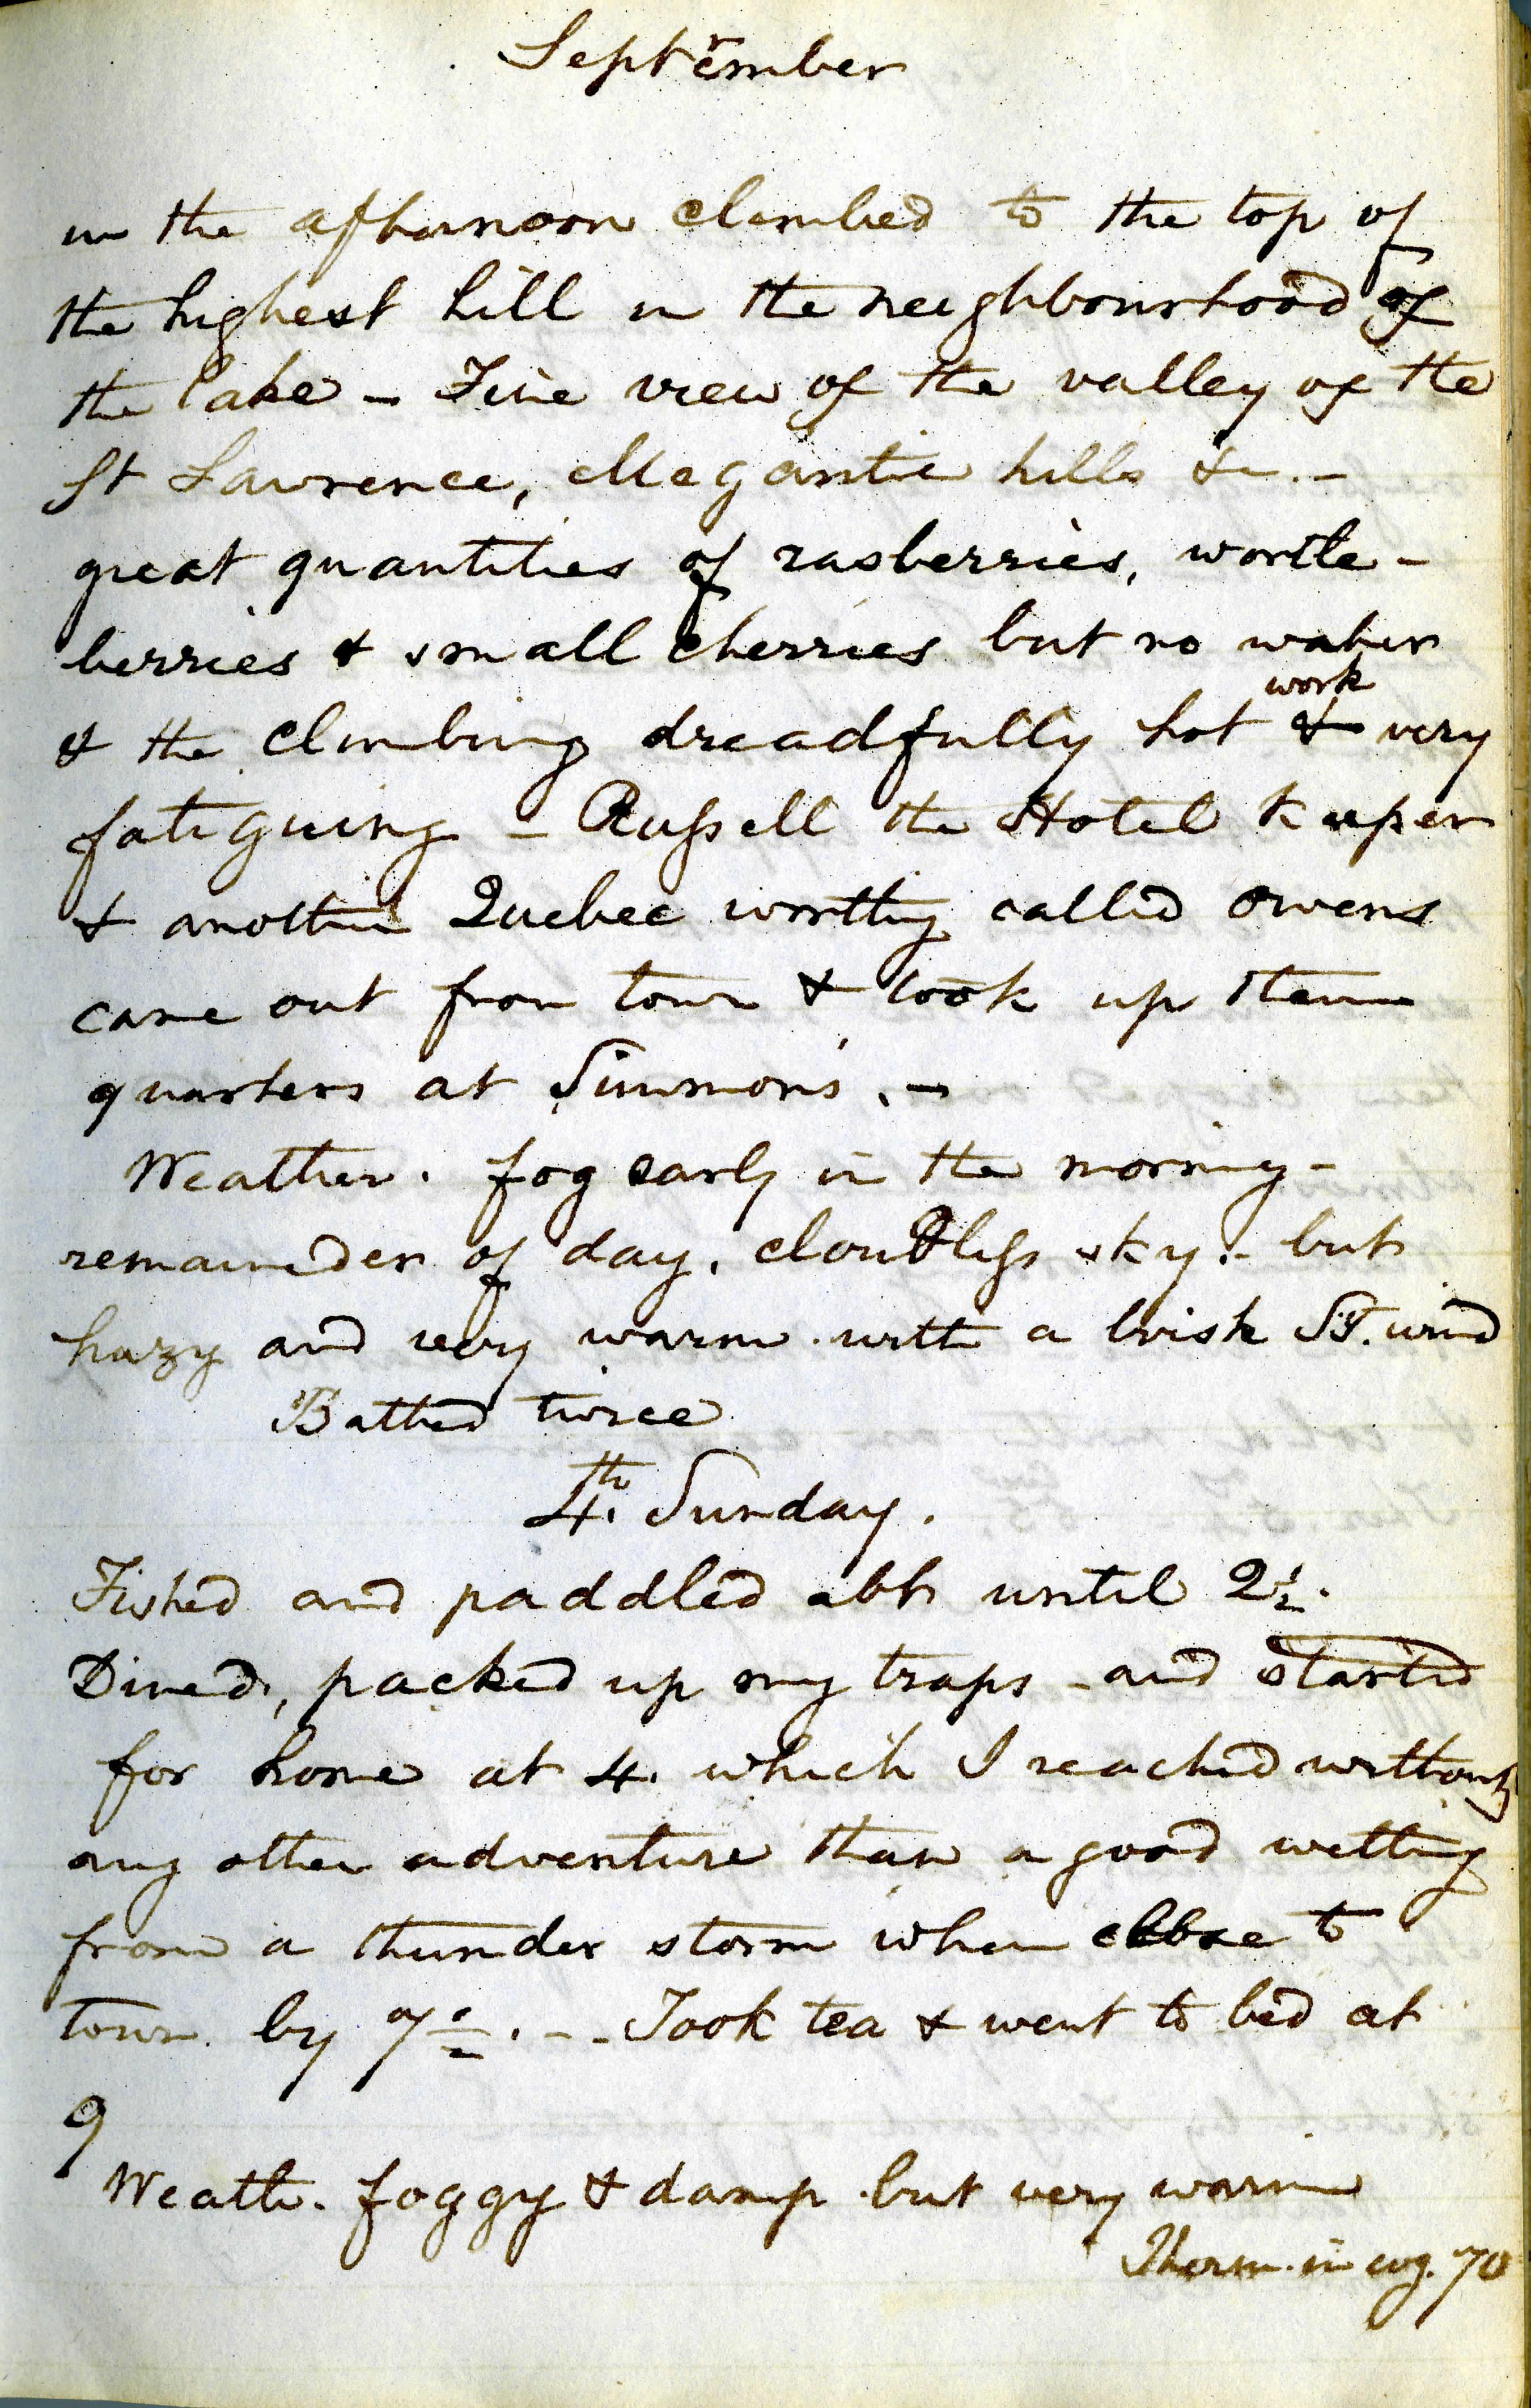 September
in the afternoon climbed to the top of
the highest hill in the neighbourhood of
the lake - Fine view of the valley of the
St Lawrence, Megantic hills &c. -
great quantities of rasberries, wortle -
berries & small cherries but no water
work
& the climbing dreadfully hot & very
fatiguing - Russell the Hotel Keeper
& another Quebec worthy called Owens
came out from town & took up their
quarters at Simmons. -
Weather. fog early in the morning -
remainder of day, cloudless sky. - but
hazy and very warm. with a brisk wind
Bathed twice
4th. Sunday.
Fished and paddled abt until 2½.
Dined, packed up my traps - and started
for home at 4. which I reached without
any other adventure than a good wetting
from a thunder storm when close to
town. by 7 . - - Took tea & went to bed at
9
Weathr. foggy & damp. but very warm
Therm. in evg. 70